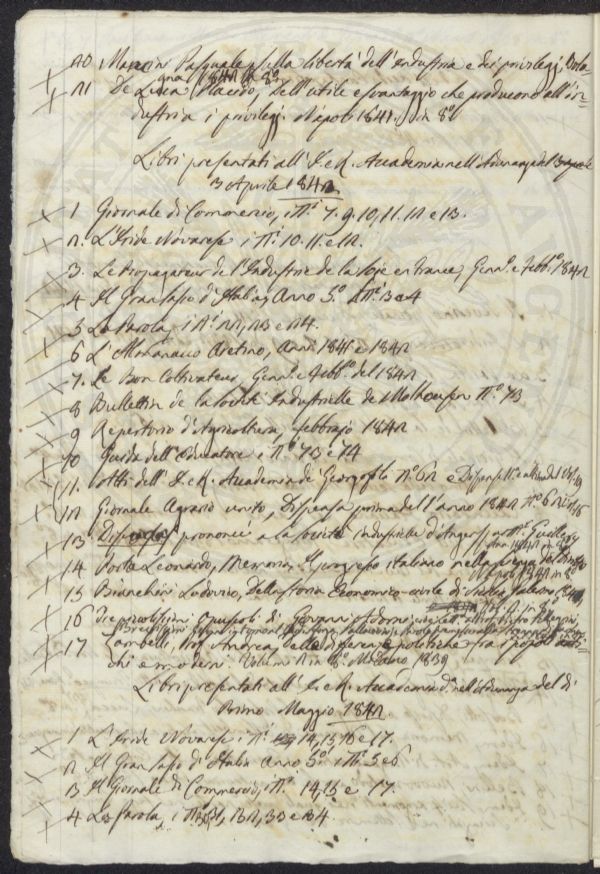 20 Mancini Pasquale, Sulla libertà dell'industria e dei privilegj.
1842 in 8º
21 De Luca Placido, Dell'utile e svantaggio che producono all'in-
dustria i privilegj. Napoli 1841. in 8º
Libri presentati all'I. e R. Accademia nell'Adunanza del
3 Aprile 1842
1 Giornale di Commercio, i Nⁱ 7. 9. 10, 11. 12 e 13.
2. L'Iride Novarese i Nⁱ 10. 11. e 12.
3. Le Propagateur de l'Industrie de la soje en France, Gennº e Febbº 1842
4 Il Gran Sasso d'Italia, Anno 5º Nⁱ 3 e 4
5 La Parola, i Nⁱ 22, 23 e 24.
6 L'Almanacco Aretino, Anni 1841 e 1842
7. Le Bon Coltivateur, Genn. e Febbº del 1842
8 Bulletin de la Société Industrielle de Molhousen Nº 73
9 Repertorio d'Agricoltura, febbrajo 1842
10 Guida dell'Educatore i Nⁱ 73 e 74
11. Atti dell'I. e R. Accademia de' Georgofili Nº 62 e Dispensa
12 Giornale Agrario unito, Dispensa prima dell'anno 1842 Nº
13 prononcé a la Société industrielle d'Angers par Mʳ Guillory
14 Porto Leonardo, Memoria, Il Congresso italiano nella
Napoli 1842 in 8º
15 Bianchini Ludovico, Della storia Economico-civile di Sicilia Palermo
16 Due opuscoli di Giovanni Adorni
17 Zambelli, Andrea, Delle differenze politiche fra i popoli anti-
chi e moderni Volumi 2 in 8º Milano 1839
Libri presentati all'I. e R. Accademia nell'Adunanza del dì
Primo Maggio 1842
1 L'Iride Novarese i Nⁱ 14, 15, 16 e 17.
2 Il Gran Sasso d'Italia Anno 5º i Nⁱ 5 e 6
3 Il Giornale di Commercio, i Nⁱ 14, 15 e 17.
4 La Parola, i Nⁱ 31, 32, 33 e 34